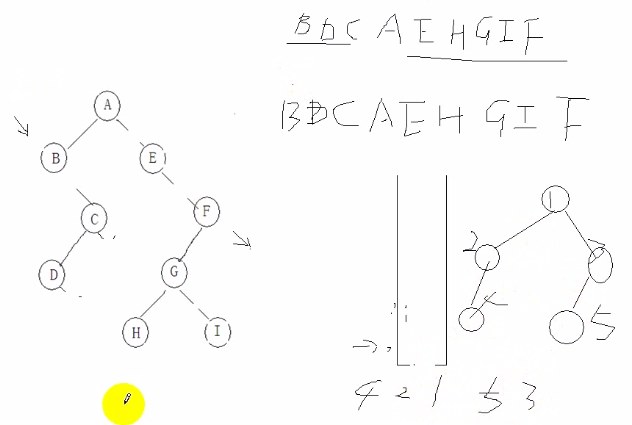 B D C A E H G I F
B D C A E H G I F
A
B
E
C
F
D
G
H
I
1
2
3
4
5
4 2 1 5 3